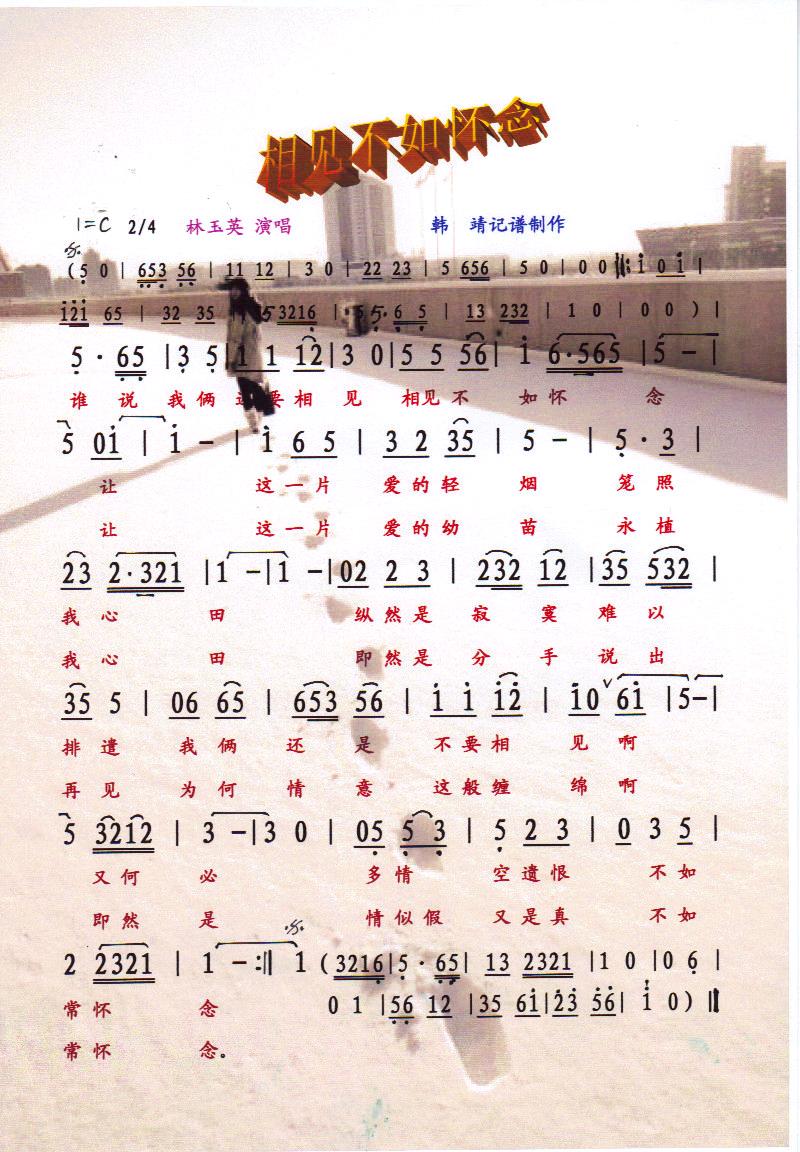 相见不如怀念
1=C 2/4 林玉英 演唱 韩 靖记谱制作
(5 0 | 653 56 | 11 12 | 3 0 | 22 23 | 5 656 | 5 0 | 0 0 ‖: i 0 i |
i2i 65 | 32 35 | 3216 | 5· 6 5 | 13 232 | 1 0 | 0 0 ) |
5 · 65 | 3 5 | 1 1 12 | 3 0 | 5 5 56 | i 6·565 | 5 — |
谁 说 我 俩 要 相 见 相见 不 如 怀 念
5 0i | i — | i 6 5 | 3 2 35 | 5 — | 5 · 3 |
让 这 一 片 爱 的 轻 烟 笼 照
让 这 一 片 爱 的 幼 苗 永 植
23 2·321 | 1 — | 1 — | 02 2 3 | 232 12 | 35 532 |
我 心 田 纵 然 是 寂 寞 难 以
我 心 田 即 然 是 分 手 说 出
35 5 | 06 65 | 653 56 | i i i2 | i0 6i | 5— |
排 遣 我 俩 还 是 不 要 相 见 啊
再 见 为 何 情 意 这 般 缠 绵 啊
5 3212 | 3 — | 3 0 | 05 5 3 | 5 2 3 | 0 3 5 |
又 何 必 多 情 空 遗 恨 不 如
即 然 是 情 似 假 又 是 真 不 如
2 2321 | 1 — :‖ 1 (3216 | 5 · 65 | 13 2321 | 1 0 | 0 6 |
常 怀 念 0 1 | 56 12 | 35 61 | 23 56 | i 0 ) ‖
常 怀 念。